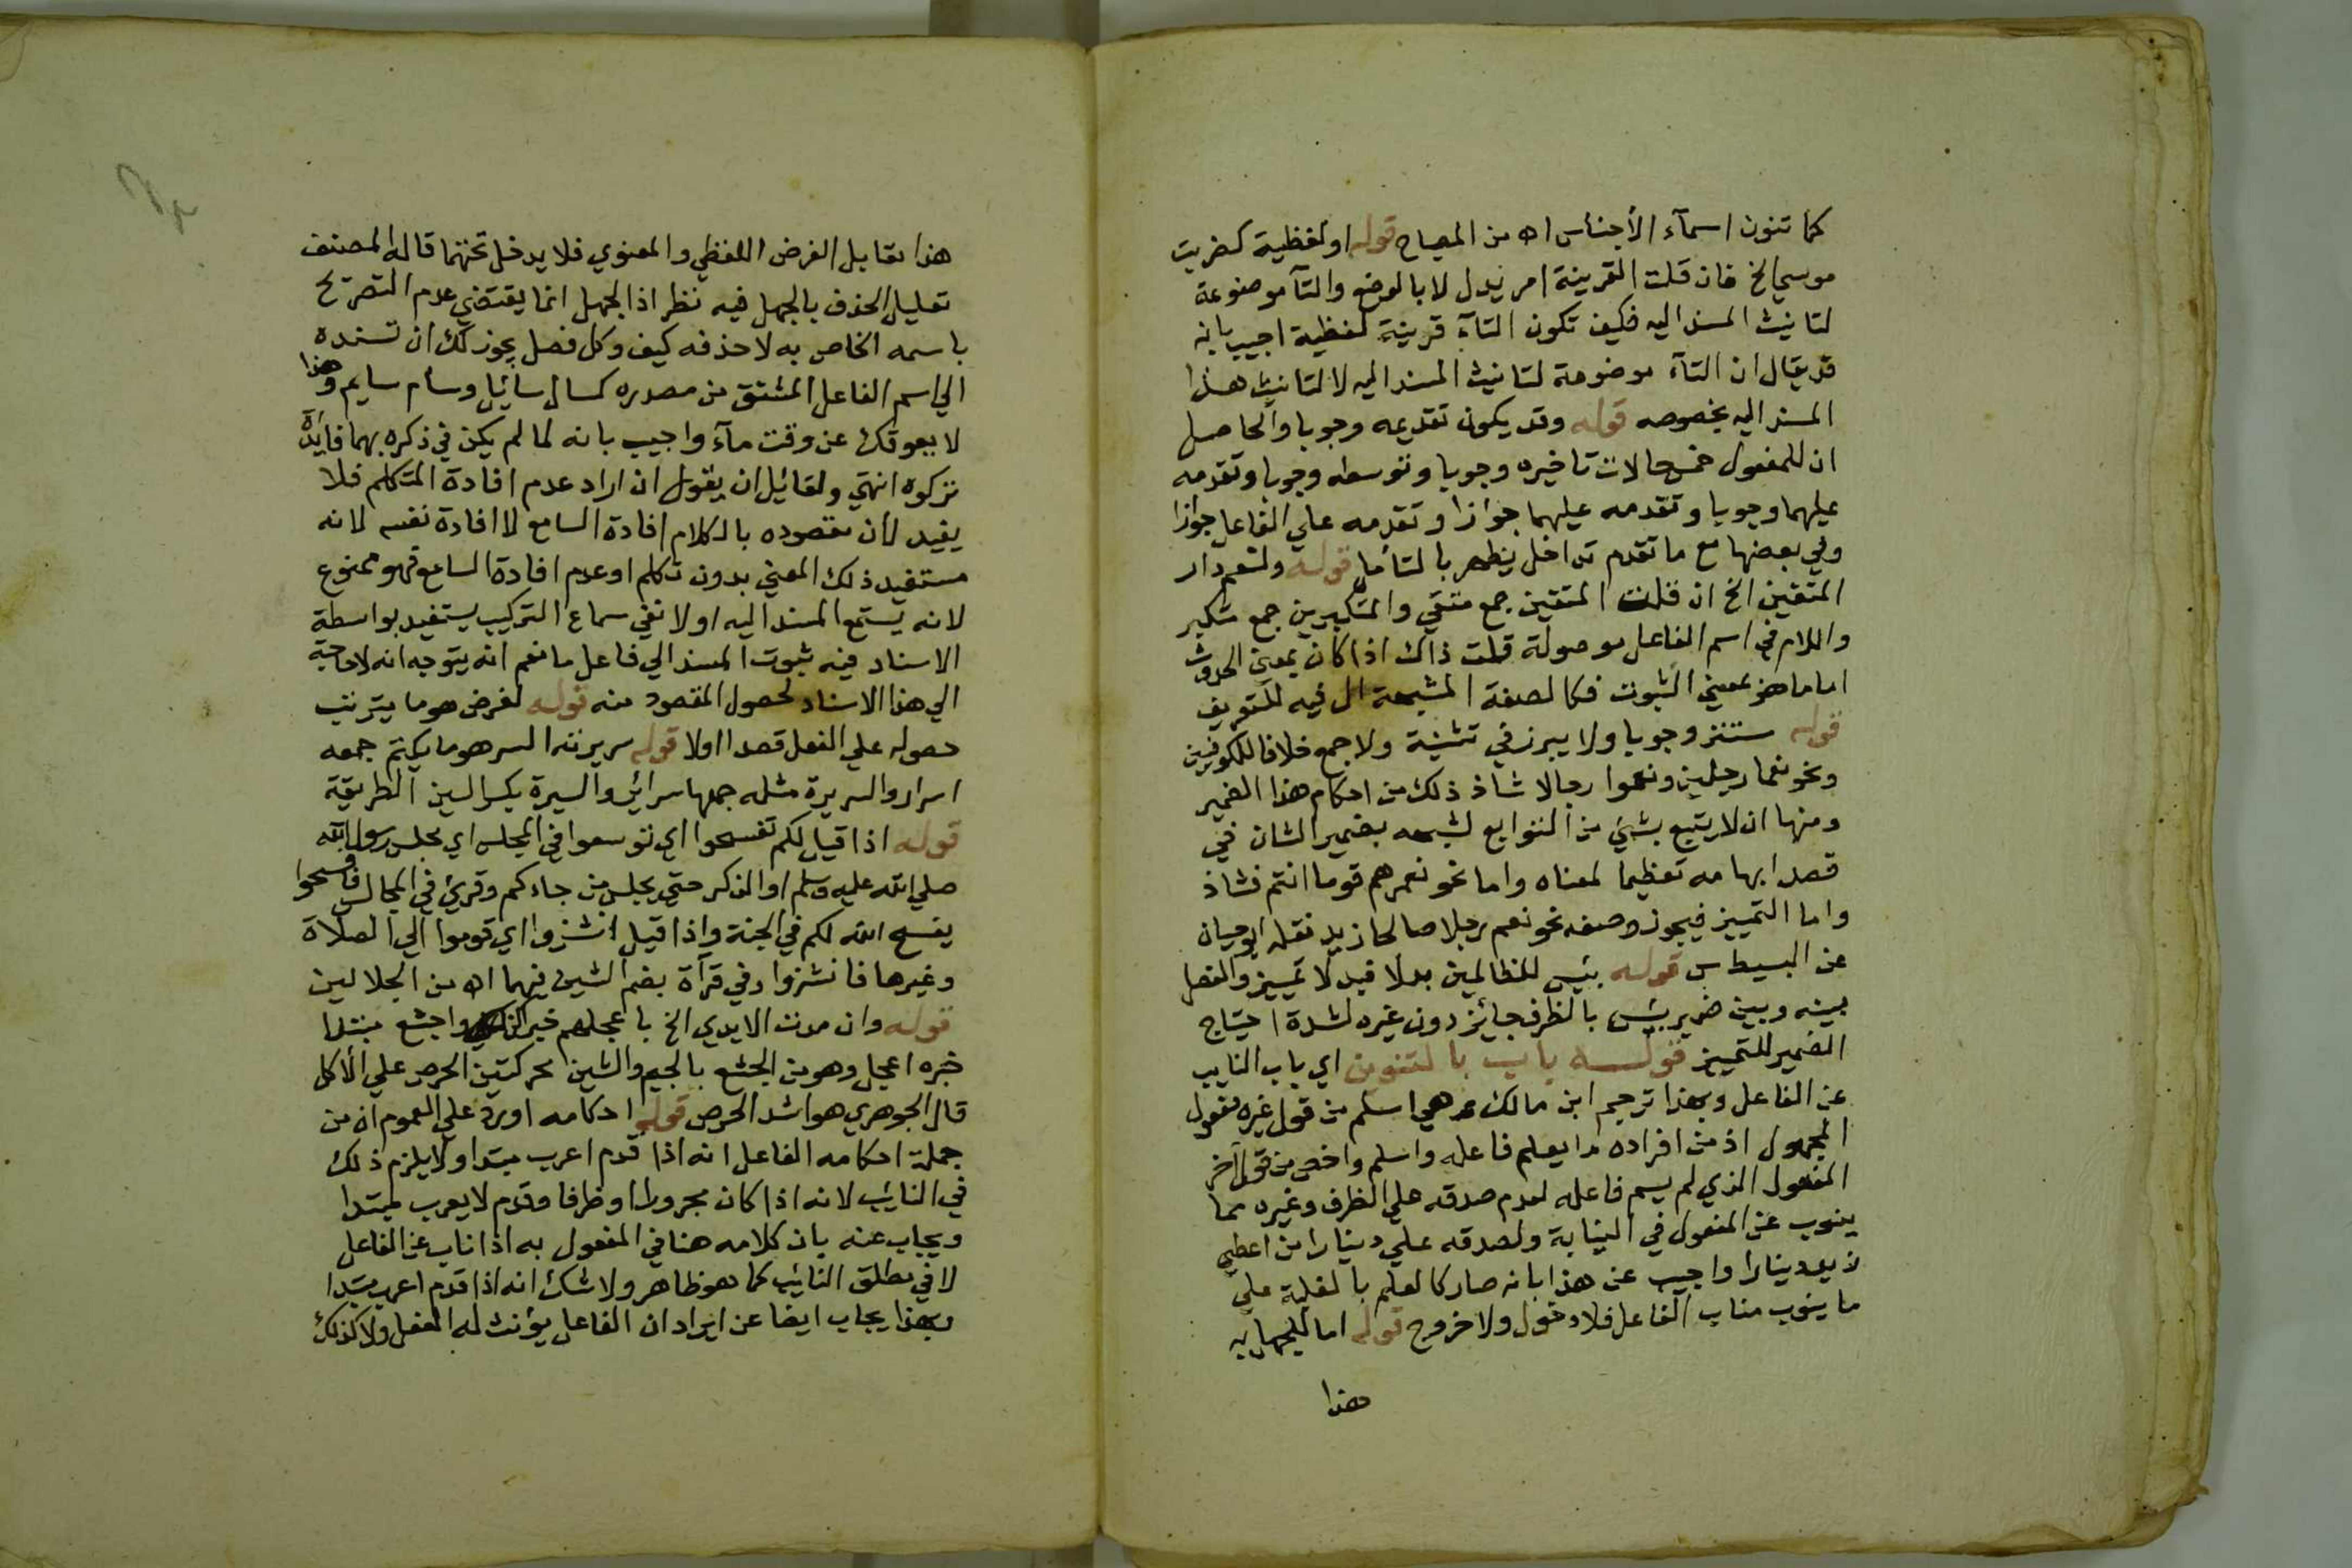 كما تنون اسمآء الأجناس اه من المصباح قوله او لفظية كضربت
موسي الخ فان قلت القرينة امر يدل لا بالوضع والتآ موضوعة
لتانيث المسند اليه فكيف تكون التآء قرينة لفظية اجيب بانه
قد يقال ان التآء موضوعة لتانيث المسند اليه لا لتانيث هذا
المسند اليه بخصوصه قوله وقد يكون تقديمه وجوبا والحاصل
ان للمفعول خمس حالات تاخيره وجوبا وتوسطه وجوبا وتقدمه
عليهما وجوبا وتقدمه عليهما جوازا وتقدمه علي الفاعل جوازا
وفي بعضها مع ما تقدم تداخل يظهر بالتأمل قوله ولنعم دار
المتقين الخ ان قلت المتقين جمع متقي والمتكبرين جمع متكبر
واللام في اسم الفاعل موصولة قلت ذاك اذا كان بمعني الحدوث
اما ما هو بمعني الثبوت فكالصفة المشبهة ال فيه للتعريف
قوله مستتر وجوبا ولا يبرز في تثنية ولا جمع خلافا للكوفيين
ونحو نعما رجلين ونعموا رجالا شاذ ذلك من احكام هذا الضمير
ومنها ان لا يتبع بشئ من التوابع لشبهه بضمير الشان في
قصد ابهامه تعظيما لمعناه واما نحو نعم هم قوما انتم فشاذ
واما التمييز فيجوز وصفه نحو نعم رجلا صالحا زيد نقله ابو حيان
عن البسيط س قوله بئس للظالمين بدلا فبدلا تمييز والفصل
بينه وبين ضمير بئس بالظرف جائز دون غيره لشدة احتياج
الضمير للتمييز قوله باب بالتنوين اي باب النايب
عن الفاعل وبهذا ترجم ابن مالك وهي اسلم من قول غيره مفعول
المجهول اذ من افراده ما يعلم فاعله واسلم واخص من قول آخر
المفعول الذي لم يسم فاعله لعدم صدقه علي الظرف وغيره مما
ينوب عن المفعول في النيابة ولصدقه علي دينارا من اعطي
زيد دينارا واجيب عن هذا بانه صار كالعلم بالغلبة علي
ما ينوب مناب الفاعل فلا دخول ولا خروج قوله اما للجهل به
هذا
هذا مقابل الغرض اللفظي والمعنوي فلا يدخل تحتهما قاله المصنف
تعليل الحذف بالجهل فيه نظر اذ الجهل انما يقتضي عدم التصريح
باسمه الخاص به لا حذفه كيف وكل فصل يجوز لك ان تسنده
الي اسم الفاعل المشتق من مصدره كسال سائل وسام سايم وهذا
لا يعوقك عن وقت مآء واجيب بانه لما لم يكن في ذكره بهما فائدة
تركوه انتهي ولقائل ان يقول ان اراد عدم افادة المتكلم فلا
يفيد لأن مقصوده بالكلام افادة السامع لا افادة نفسه لانه
مستفيد ذلك المعني بدون تكلم او عدم افادة السامع فهو ممنوع
لانه يستمع المسند اليه اولا ففي سماع التركيب يستفيد بواسطة
الاسناد فيه ثبوت المسند الي فاعل ما نعم انه يتوجه انه لا حاجة
الي هذا الاسناد لحصول المقصود منه قوله لغرض هو ما يترتب
حصوله علي الفعل قصدا اولا قوله سريرته السر هو ما يكتم جمعه
اسرار والسريرة مثله جمعها سرائر والسيرة بكسر السين الطريقة
قوله اذا قيل لكم تفسحوا اي توسعوا في المجلس اي مجلس رسول الله
صلي الله عليه وسلم او الذكر حتي يجلس من جاءكم وقرئ في المجالس فافسحوا
يفسح الله لكم في الجنة واذا قيل انشزوا اي قوموا الي الصلاة
وغيرها فانشزوا وفي قرآة بضم الشين فيهما اه من الجلالين
قوله وان مدت الايدي الخ باعجلهم خبر اكن واجشع مبتدا
خبره اعجل وهو من الجشع بالجيم والشين محركتين الحرص علي الأكل
قال الجوهري هو اشد الحرص قوله احكامه اورد علي العموم ان من
جملة احكامه الفاعل انه اذا قدم اعرب مبتدا ولا يلزم ذلك
في النائب لانه اذا كان مجرورا او ظرفا وقدم لا يعرب مبتدا
ويجاب عنه بان كلامه هنا في المفعول به اذا ناب عن الفاعل
لا في مطلق النائب كما هو ظاهر ولا شك انه اذا قدم اعرب مبتدا
وبهذا يجاب ايضا عن ايراد ان الفاعل يؤنث له الفعل ولا كذلك